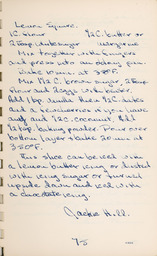 Lemon Squares.
1C. flour 1/2C. butter or
2 Tbsp. white sugar margarine
Mix together with fingers
and press into an oiley pan.
Bake 10 min. at 350°F.
Mix 1 1/2 C. brown sugar, 2 Tbsp.
flour and 2 eggs with
Add 1 tsp. vanilla then 1/2 C. dates
and a few cherries if you have
any and 1/2 C. coconut. Add
1/2 tsp. baking powder. Pour over
bottom layer & bake 20 min at
350°F.
This slice can be iced with
a lemon butter icing or dusted
with icing sugar or turned
upside down and iced with
a chocolate icing.
Jackie Hill.
75